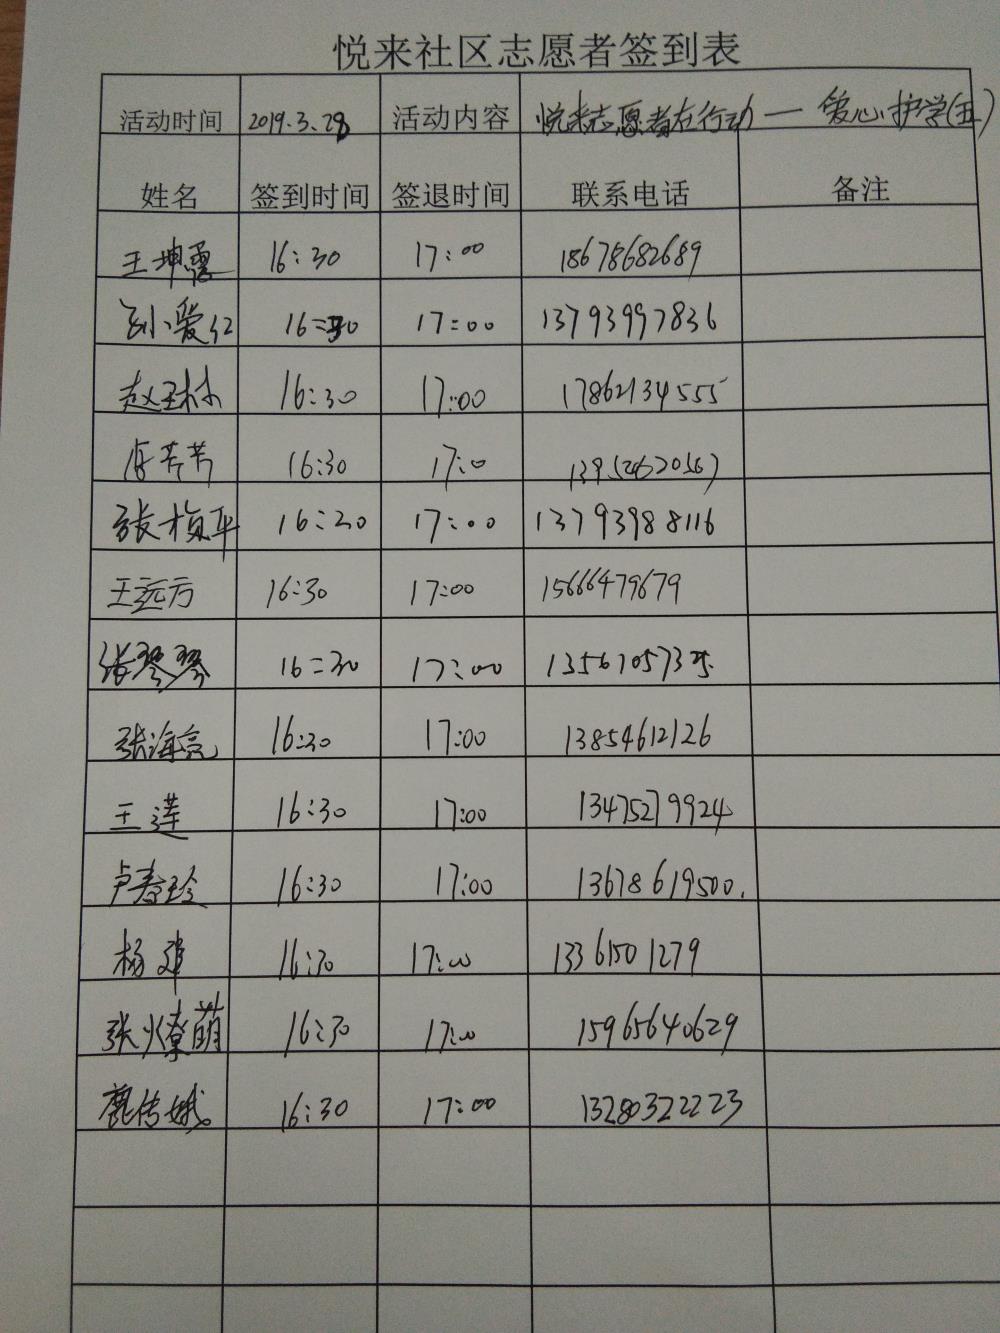 悦来社区志愿者签到表
活动时间 2019.3.28 活动内容 悦来志愿者在行动 — 爱心护学(五)
姓名 签到时间 签退时间 联系电话 备注
王坤霞 16:30 17:00 18678682689
孙小爱红 16:30 17:00 13793997836
赵玉林 16:30 17:00 17862134555
16:30 17:0 13954620567
张桢平 16:30 17:00 13793988116
王远方 16:30 17:00 15666479679
张琴琴 16:30 17:00
张海亮 16:30 17:00 13854612126
王莲 16:30 17:00 13475279924
卢寿珍 16:30 17:00 13678619500.
杨 16:30 17:00 13361501279
张燎萌 16:30 17:00 15965640629
鹿传娥 16:30 17:00 13280322223